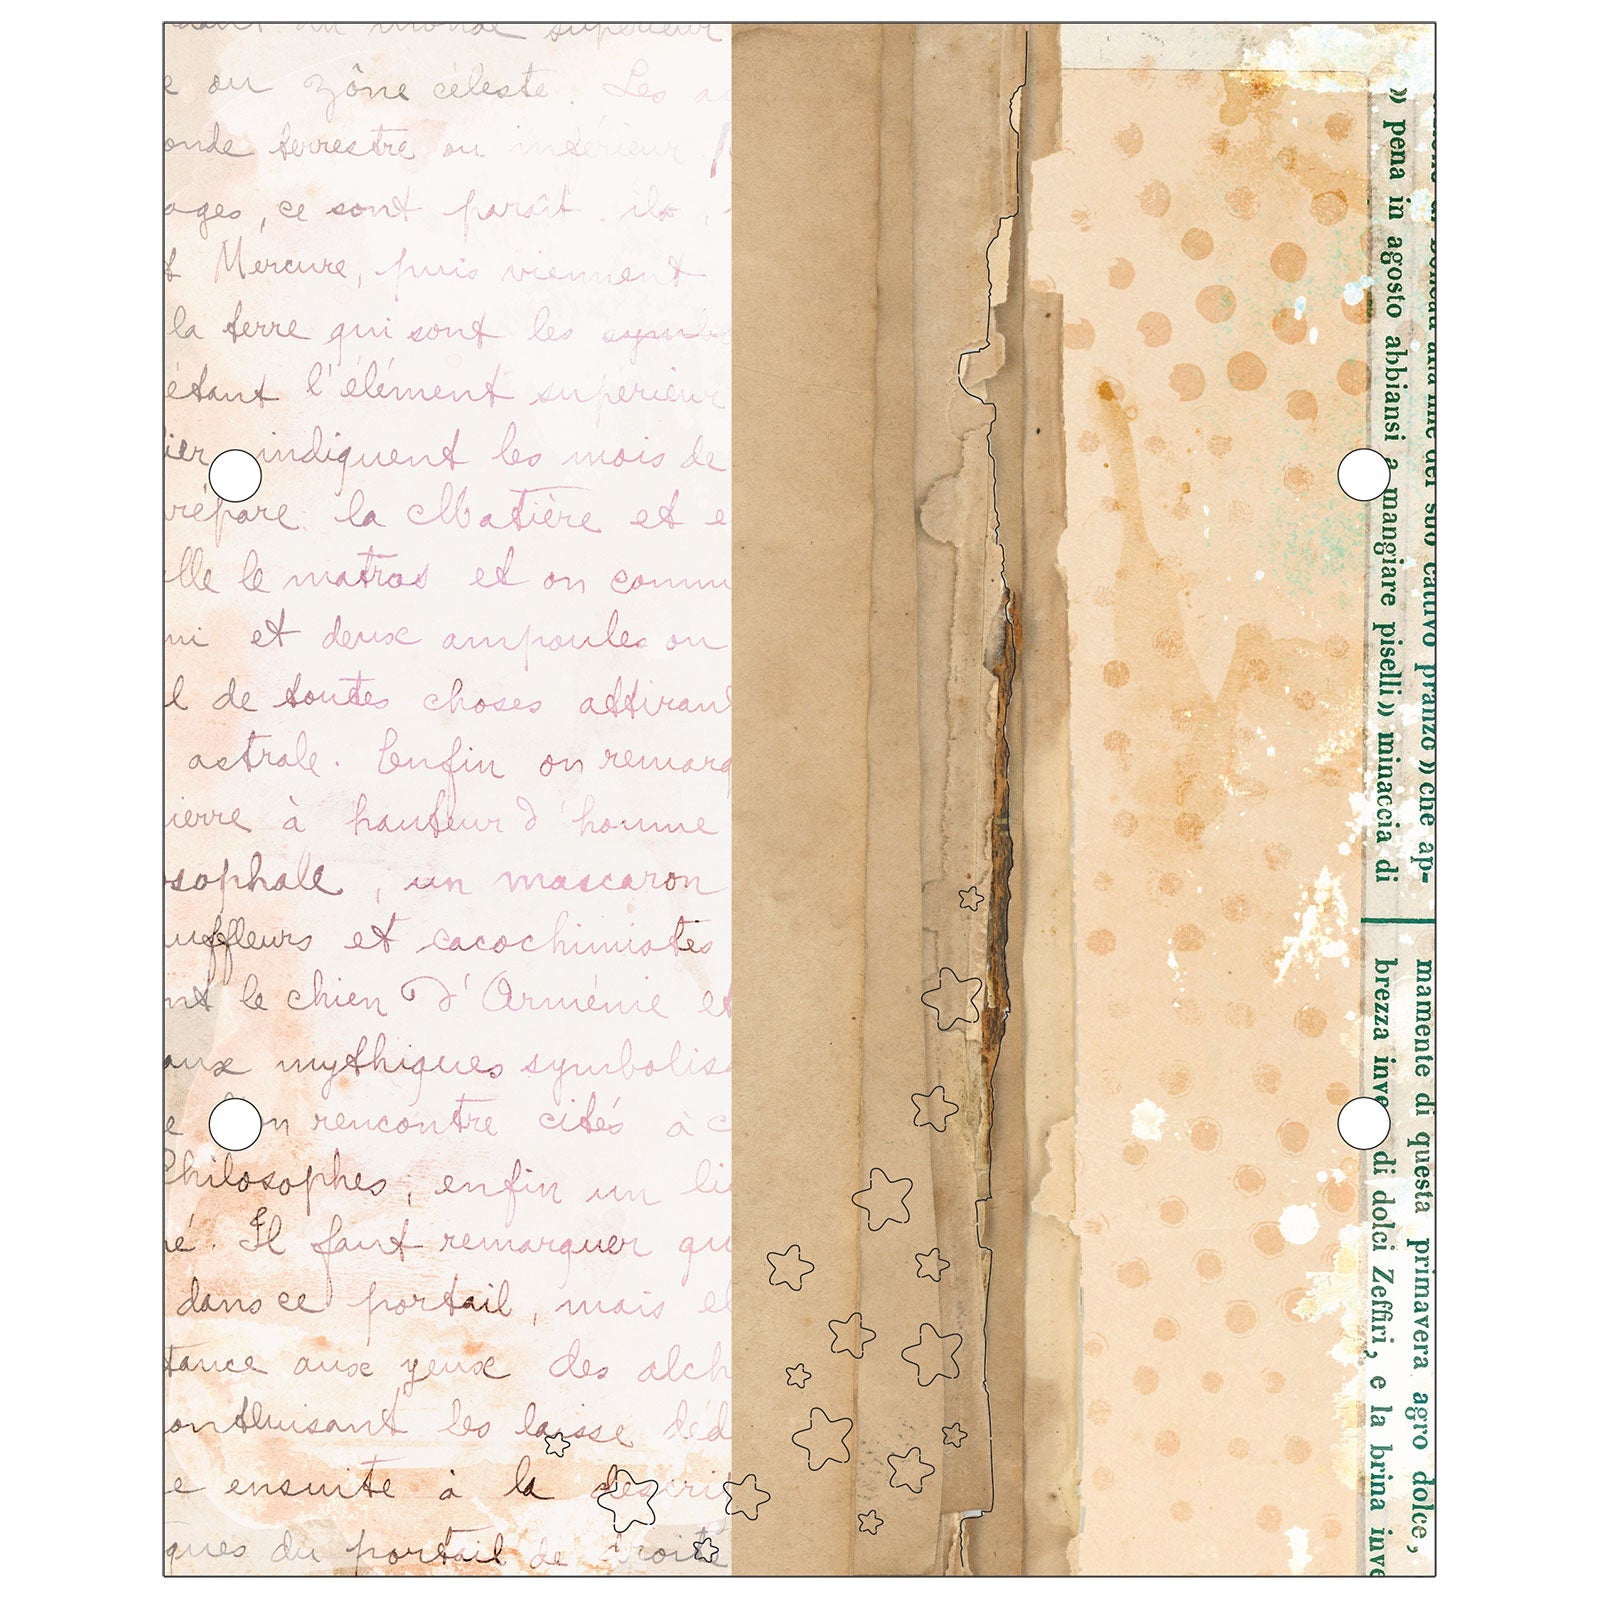 dant du monde supérieur
e ou zône céleste. Les
onde terrestre ou inférieur
ages, ce sont paraît-ils,
t Mercure, puis viennent
la terre qui sont les symbo
étant l'élément supérieur
ier indiquent les mois de
répare la Matière et e
elle le matras et on comm
ni et deux ampoules on
l de toutes choses attiran
astrale. Enfin on remarq
ierre à hauteur d'homme
osophale, un mascaron
uffleurs et cacochimistes
nt le chien d'Arménie et
aux mythiques symbolis
e on rencontre cités à c
Philosophes, enfin un li
né. Il faut remarquer qu
dans ce portail, mais el
tance aux yeux des alch
onthuisant les laisse déd
e ensuite à la descrip
ques du portail de droite
alla fine del suo cattivo pranzo » che ap-
» pena in agosto abbiansi a mangiare piselli » minaccia di
mamente di questa primavera agro dolce,
brezza inve di dolci Zeffiri, e la brina inve